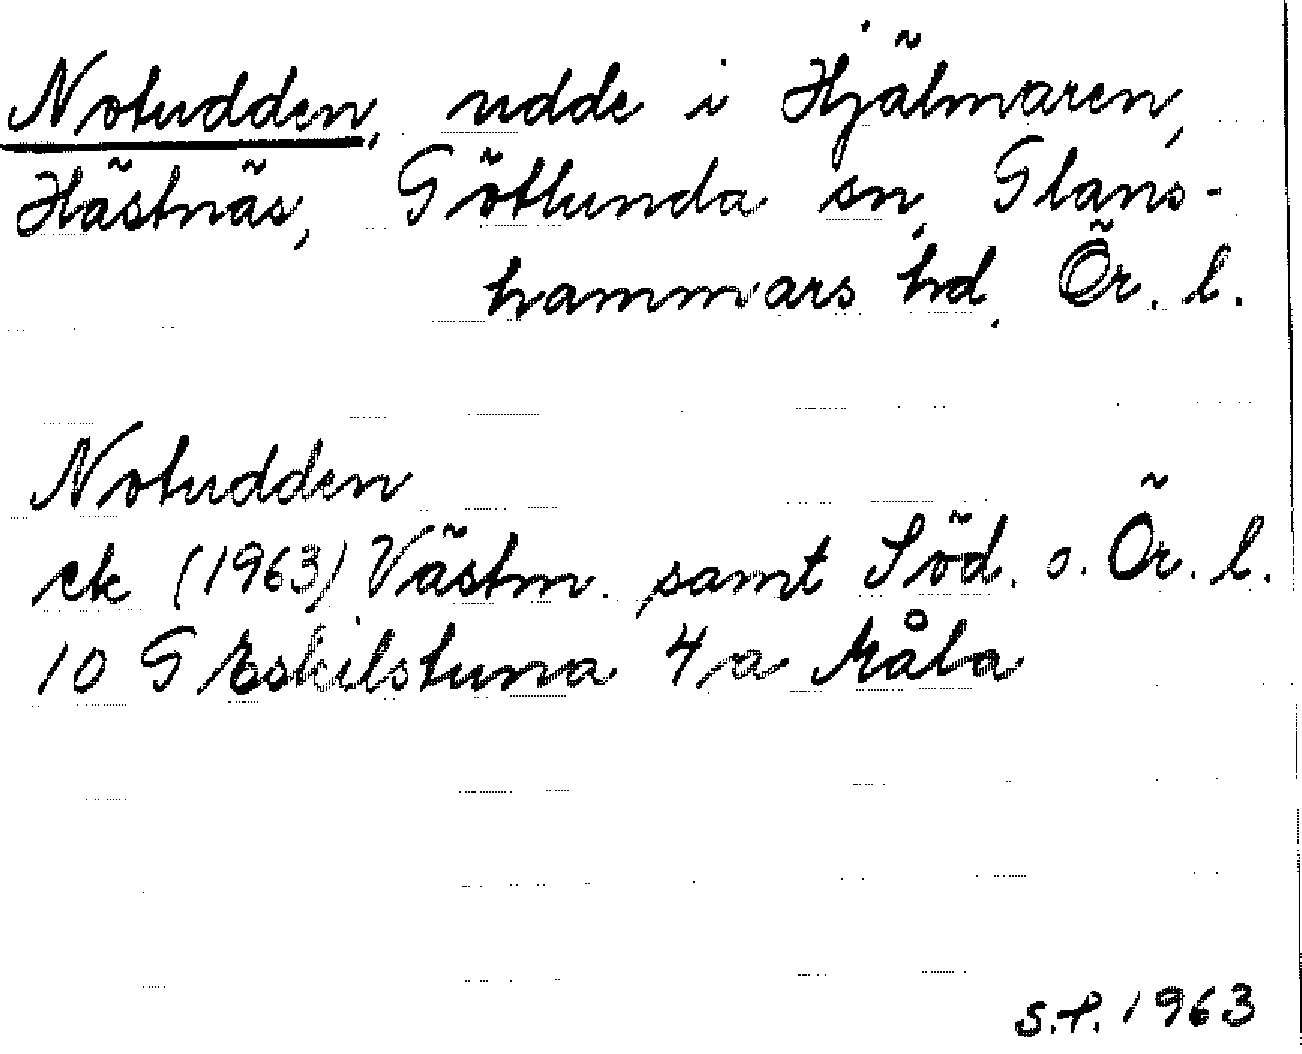 Notudden, udde i Hjälmaren,
Hästnäs, Götlunda sn, Glans-
hammars hd, Ör. l.
Notudden
ek (1963) Västm. samt Söd. o. Ör. l.
10 G Eskilstuna 4a
S.P. 1963